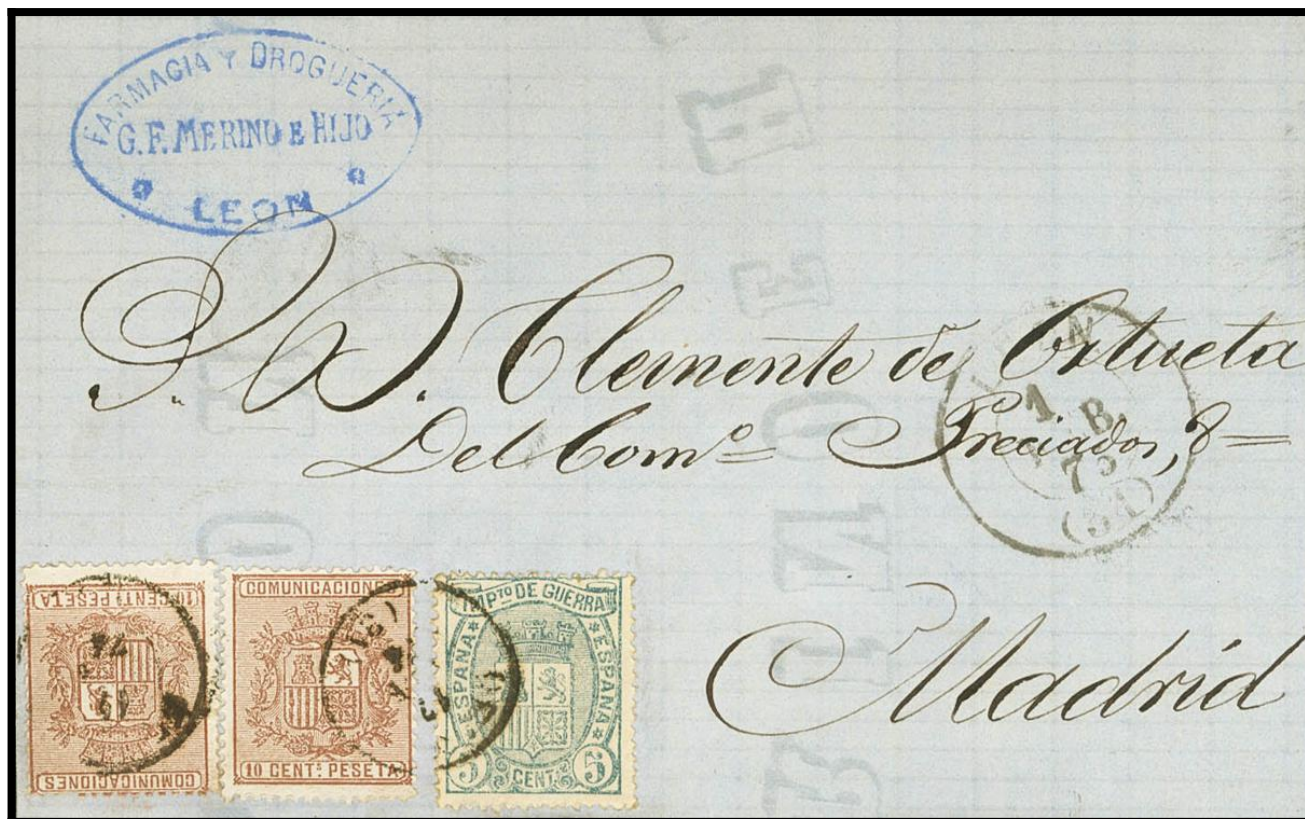 FARMACIA Y DROGUERIA
G. F. MERINO E HIJO
LEON
S. D. Clemente de Ortueta
Del Comº Preciados, 8
(31)
Madrid
10 CENT.s PESETA
COMUNICACIONES
COMUNICACIONES
10 CENT.s PESETA
IMPTO DE GUERRA
ESPAÑA
ESPAÑA
5 CENT. 5